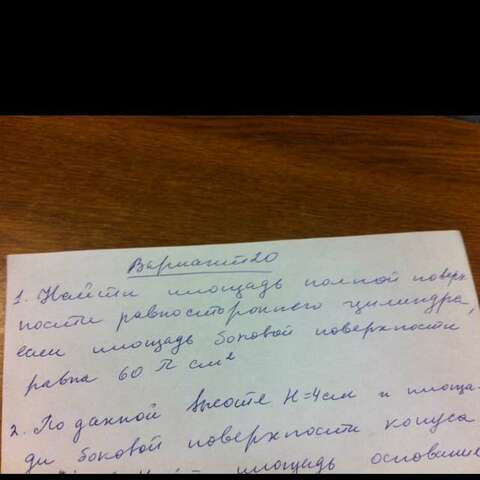 Вариант 20
1. Найти площадь полной поверх
ности равностороннего цилиндра,
если площадь боковой поверхности
равна 60 π см²
2. По данной высоте H=4см и площа
ди боковой поверхности конуса
площадь основания